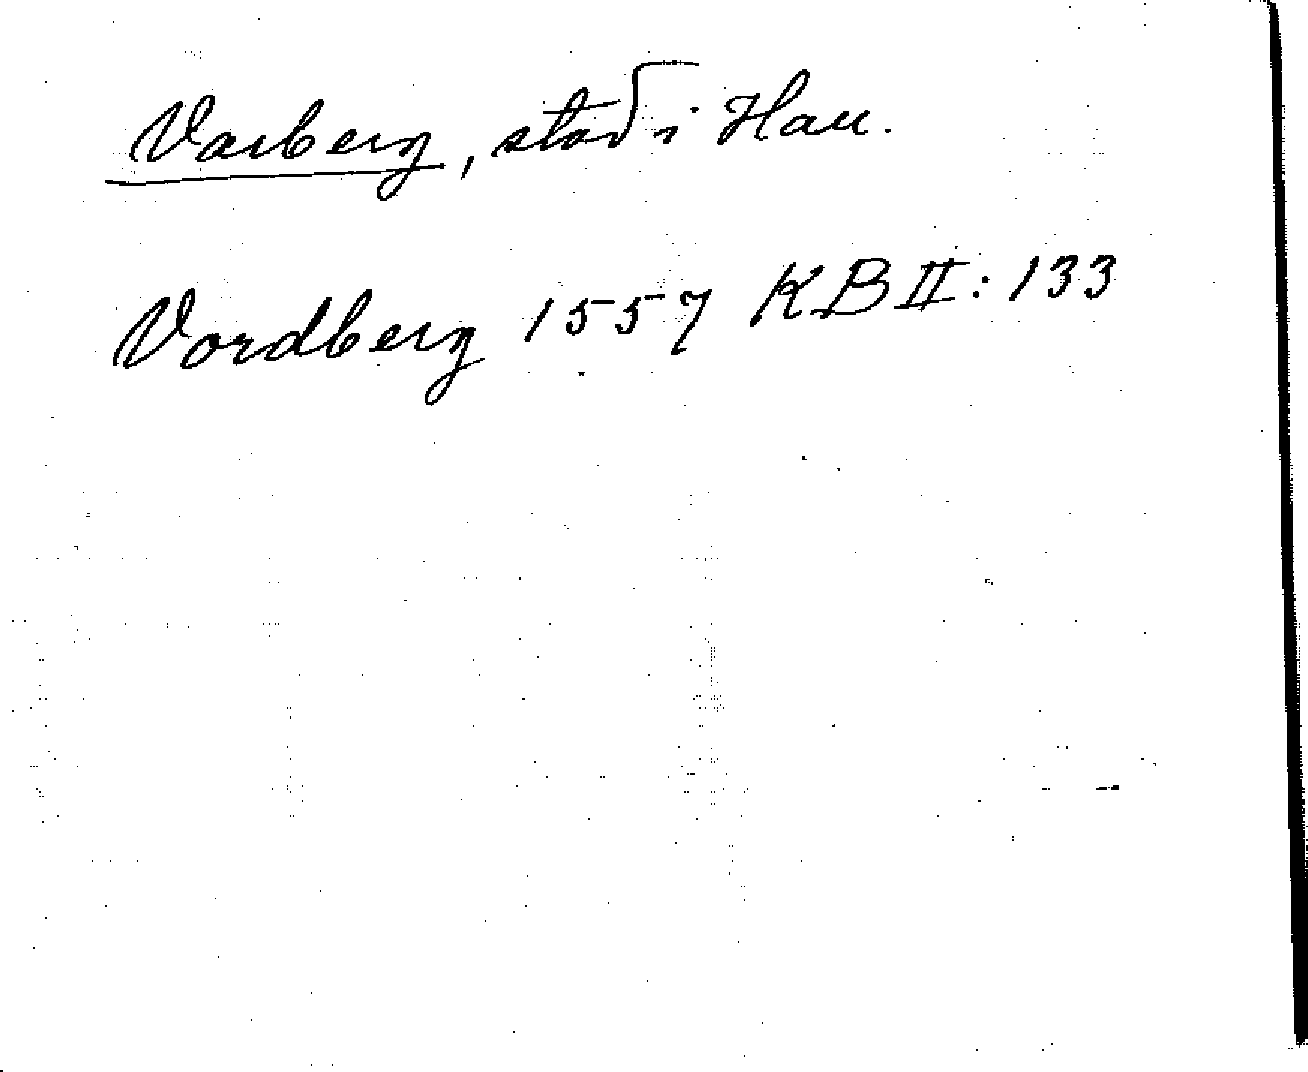 Varberg, stad i Hall.
Vordberg 1557 KB II: 133